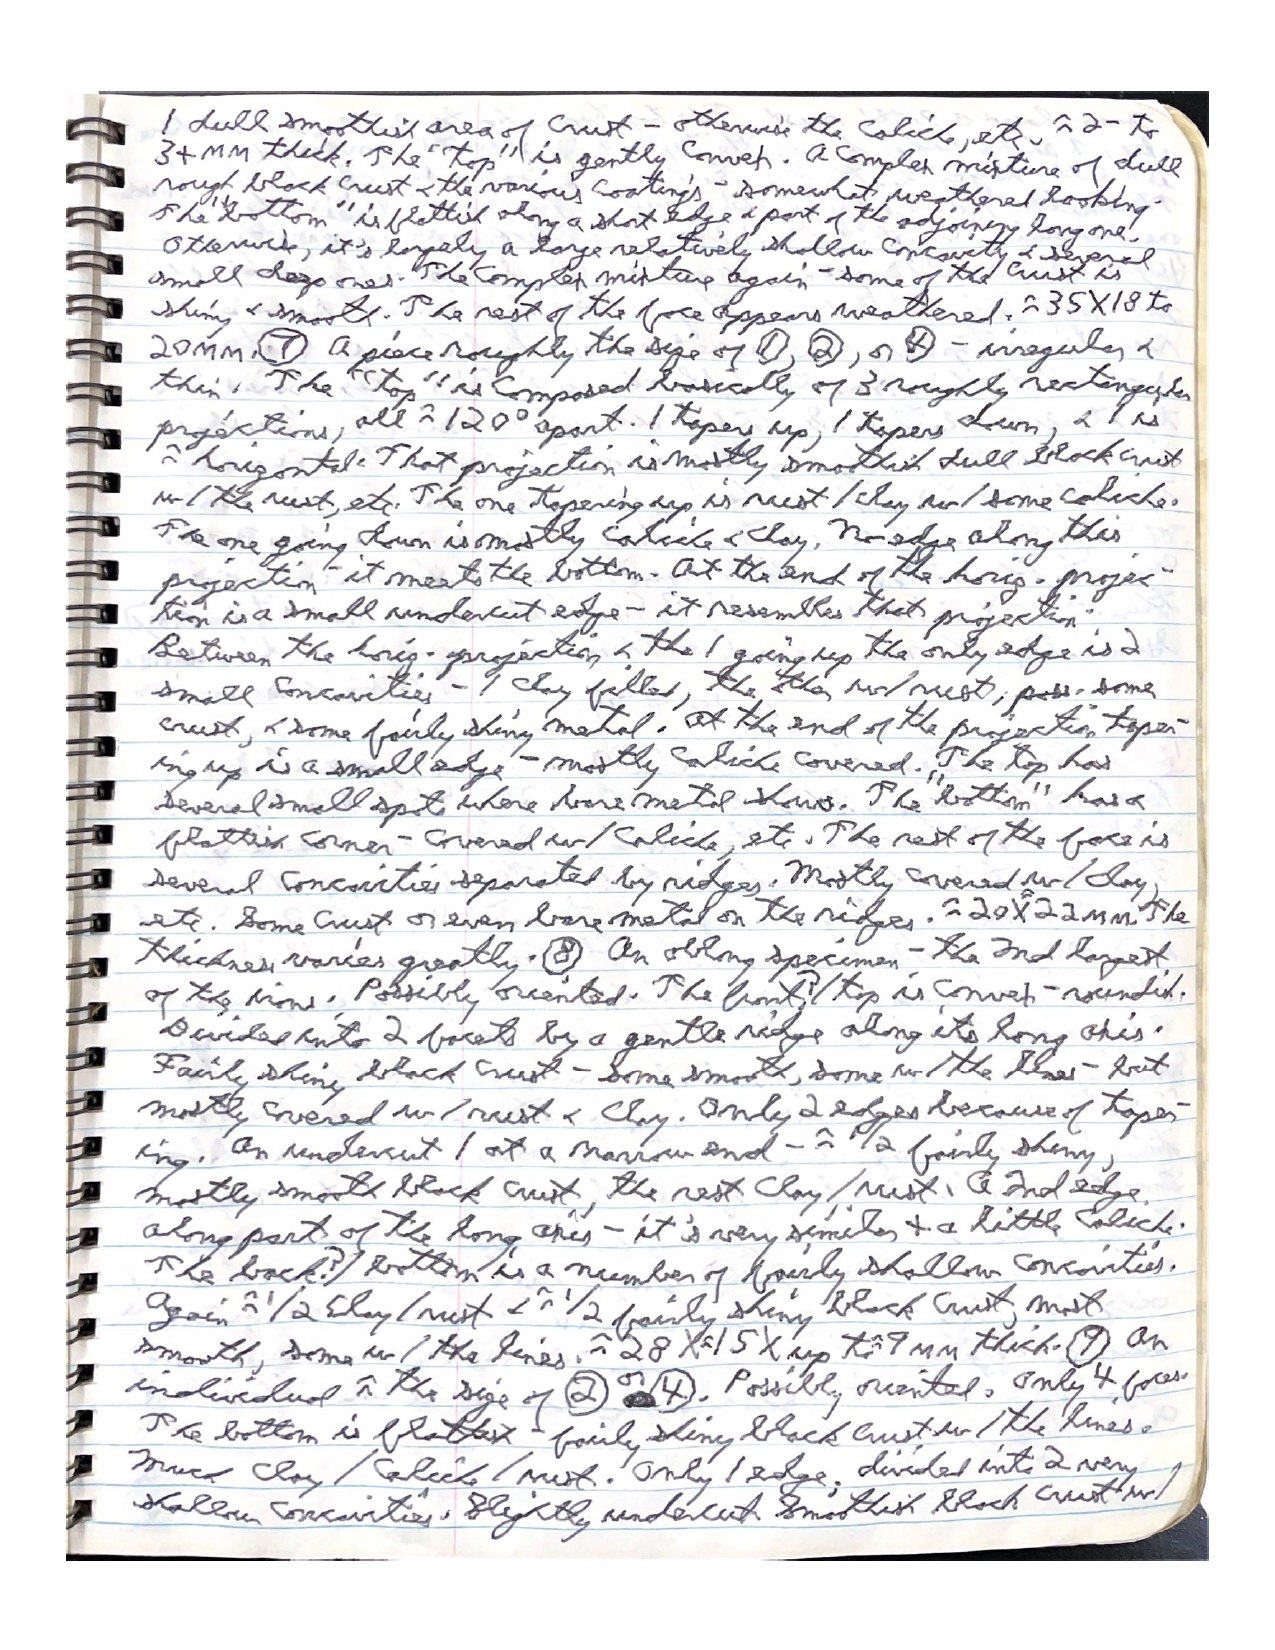 1 dull smoothish area of crust - otherwise the caliche, etc. ≈ 2- to
3+ MM thick. The "top" is gently convex. A complex mixture of dull
rough black crust & the various coatings - somewhat weathered looking.
The "bottom" is flattish along a short edge & part of the adjoining long one.
Otherwise, it's largely a large relatively shallow concavity & several
small deep ones. The complex mixture again - some of the crust is
shiny & smooth. The rest of the face appears weathered. ≈ 35 X 18 to
20 MM. ⑦ A piece roughly the size of ①, ②, or ④ - irregular &
thin. The "top" is composed basically of 3 roughly rectangular
projections, all ≈ 120° apart. 1 tapers up, 1 tapers down, & 1 is
≈ horizontal. That projection is mostly smoothish dull black crust
w/ the rust, etc. The one tapering up is rust/clay w/ some caliche.
The one going down is mostly caliche & clay. No edge along this
projection - it meets the bottom. At the end of the horiz. projec-
tion is a small undercut edge - it resembles that projection.
Between the horiz. projection & the 1 going up the only edge is 2
small concavities - 1 clay filled, the other w/ rust, poss. some
crust, & some fairly shiny metal. At the end of the projection taper-
ing up is a small edge - mostly caliche covered. The top has
several small spots where bare metal shows. The "bottom" has a
flattish corner - covered w/ caliche, etc. The rest of the face is
several concavities separated by ridges. Mostly covered w/ clay,
etc. Some crust or even bare metal on the ridges. ≈ 20 X ≈ 22 MM. The
thickness varies greatly. ⑧ An oblong specimen - the 2nd largest
of the irons. Possibly oriented. The front?/top is convex - roundish.
Divided into 2 facets by a gentle ridge along its long axis.
Fairly shiny black crust - some smooth, some w/ the lines - but
mostly covered w/ rust & clay. Only 2 edges because of taper-
ing. An undercut 1 at a narrow end - ≈ 1/2 fairly shiny,
mostly smooth black crust, the rest clay/rust. A 2nd edge
along part of the long axis - it's very similar + a little caliche.
The back?/bottom is a number of fairly shallow concavities.
Again ≈ 1/2 clay/rust & ≈ 1/2 fairly shiny black crust, most
smooth, some w/ the lines. ≈ 28 X ≈ 15 X up to ≈ 9 MM thick. ⑨ An
individual ≈ the size of ② or ④. Possibly oriented. Only 4 faces.
The bottom is flattish - fairly shiny black crust w/ the lines.
Much clay/caliche/rust. Only 1 edge, divided into 2 very
shallow concavities. Slightly undercut. Smoothish black crust w/